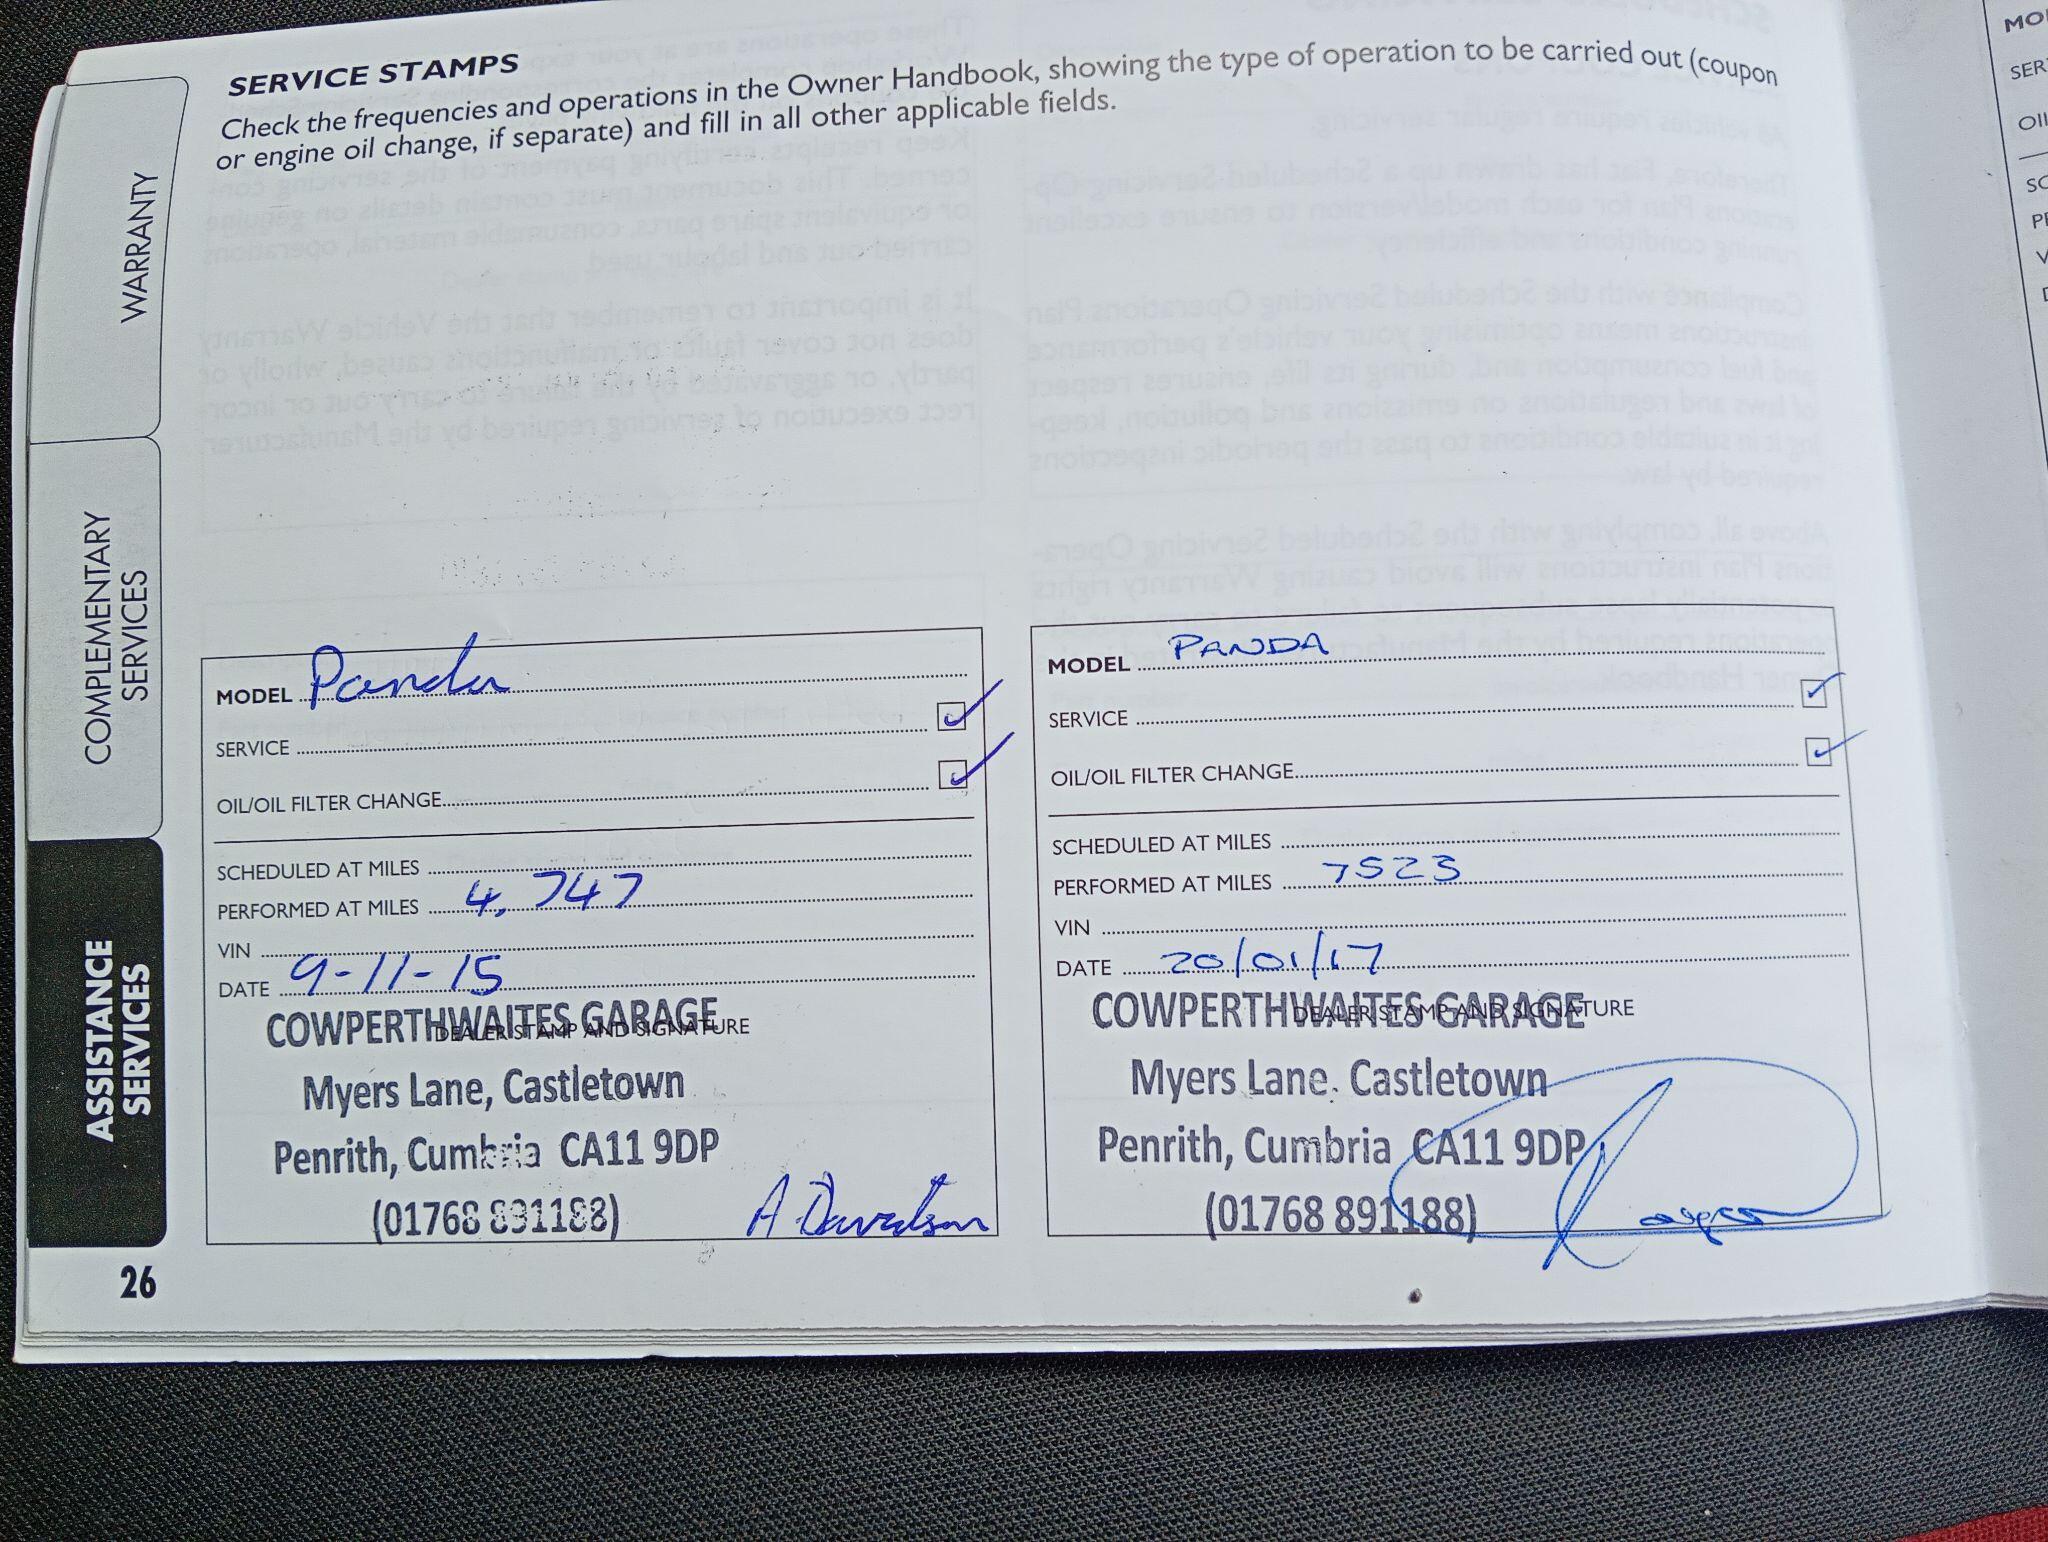 SERVICE STAMPS
Check the frequencies and operations in the Owner Handbook, showing the type of operation to be carried out (coupon
or engine oil change, if separate) and fill in all other applicable fields.
WARRANTY
COMPLEMENTARY
SERVICES
ASSISTANCE
SERVICES
26
MODEL Panda
SERVICE ✓
OIL/OIL FILTER CHANGE ✓
SCHEDULED AT MILES
PERFORMED AT MILES 4,747
VIN
DATE 9-11-15
DEALER STAMP AND SIGNATURE
COWPERTHWAITES GARAGE
Myers Lane, Castletown
Penrith, Cumbria CA11 9DP
(01768 891188)
A. Davidson
MODEL PANDA
SERVICE ✓
OIL/OIL FILTER CHANGE ✓
SCHEDULED AT MILES
PERFORMED AT MILES 7523
VIN
DATE 20/01/17
DEALER STAMP AND SIGNATURE
COWPERTHWAITES GARAGE
Myers Lane. Castletown
Penrith, Cumbria CA11 9DP
(01768 891188)